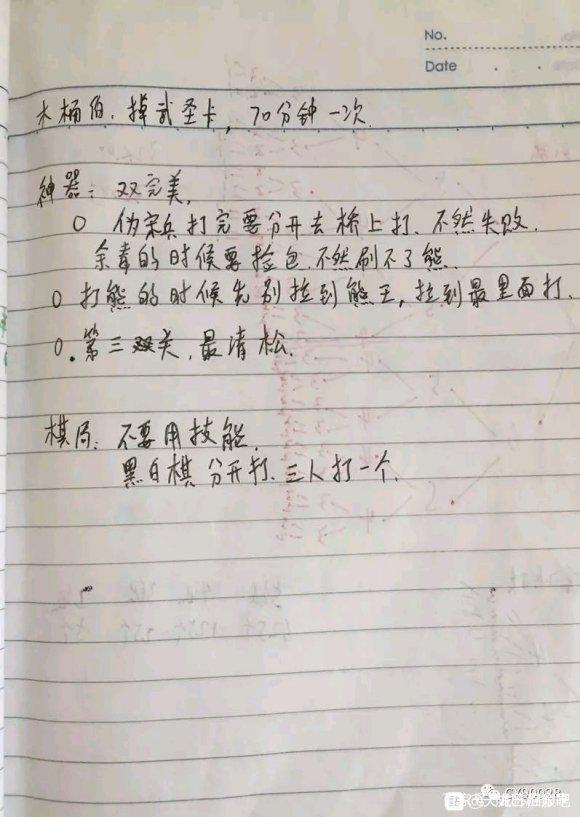 No.
Date
木桶伯. 掉武圣卡, 70分钟一次.
神器: 双完美.
O 伪宋兵打完要分开去桥上打. 不然失败.
余毒的时候要捡包. 不然刷不了熊.
O 打熊的时候先别拉到熊王, 拉到最里面打.
O. 第三关, 最清松.
棋局: 不要用技能.
黑白棋分开打. 三人打一个.